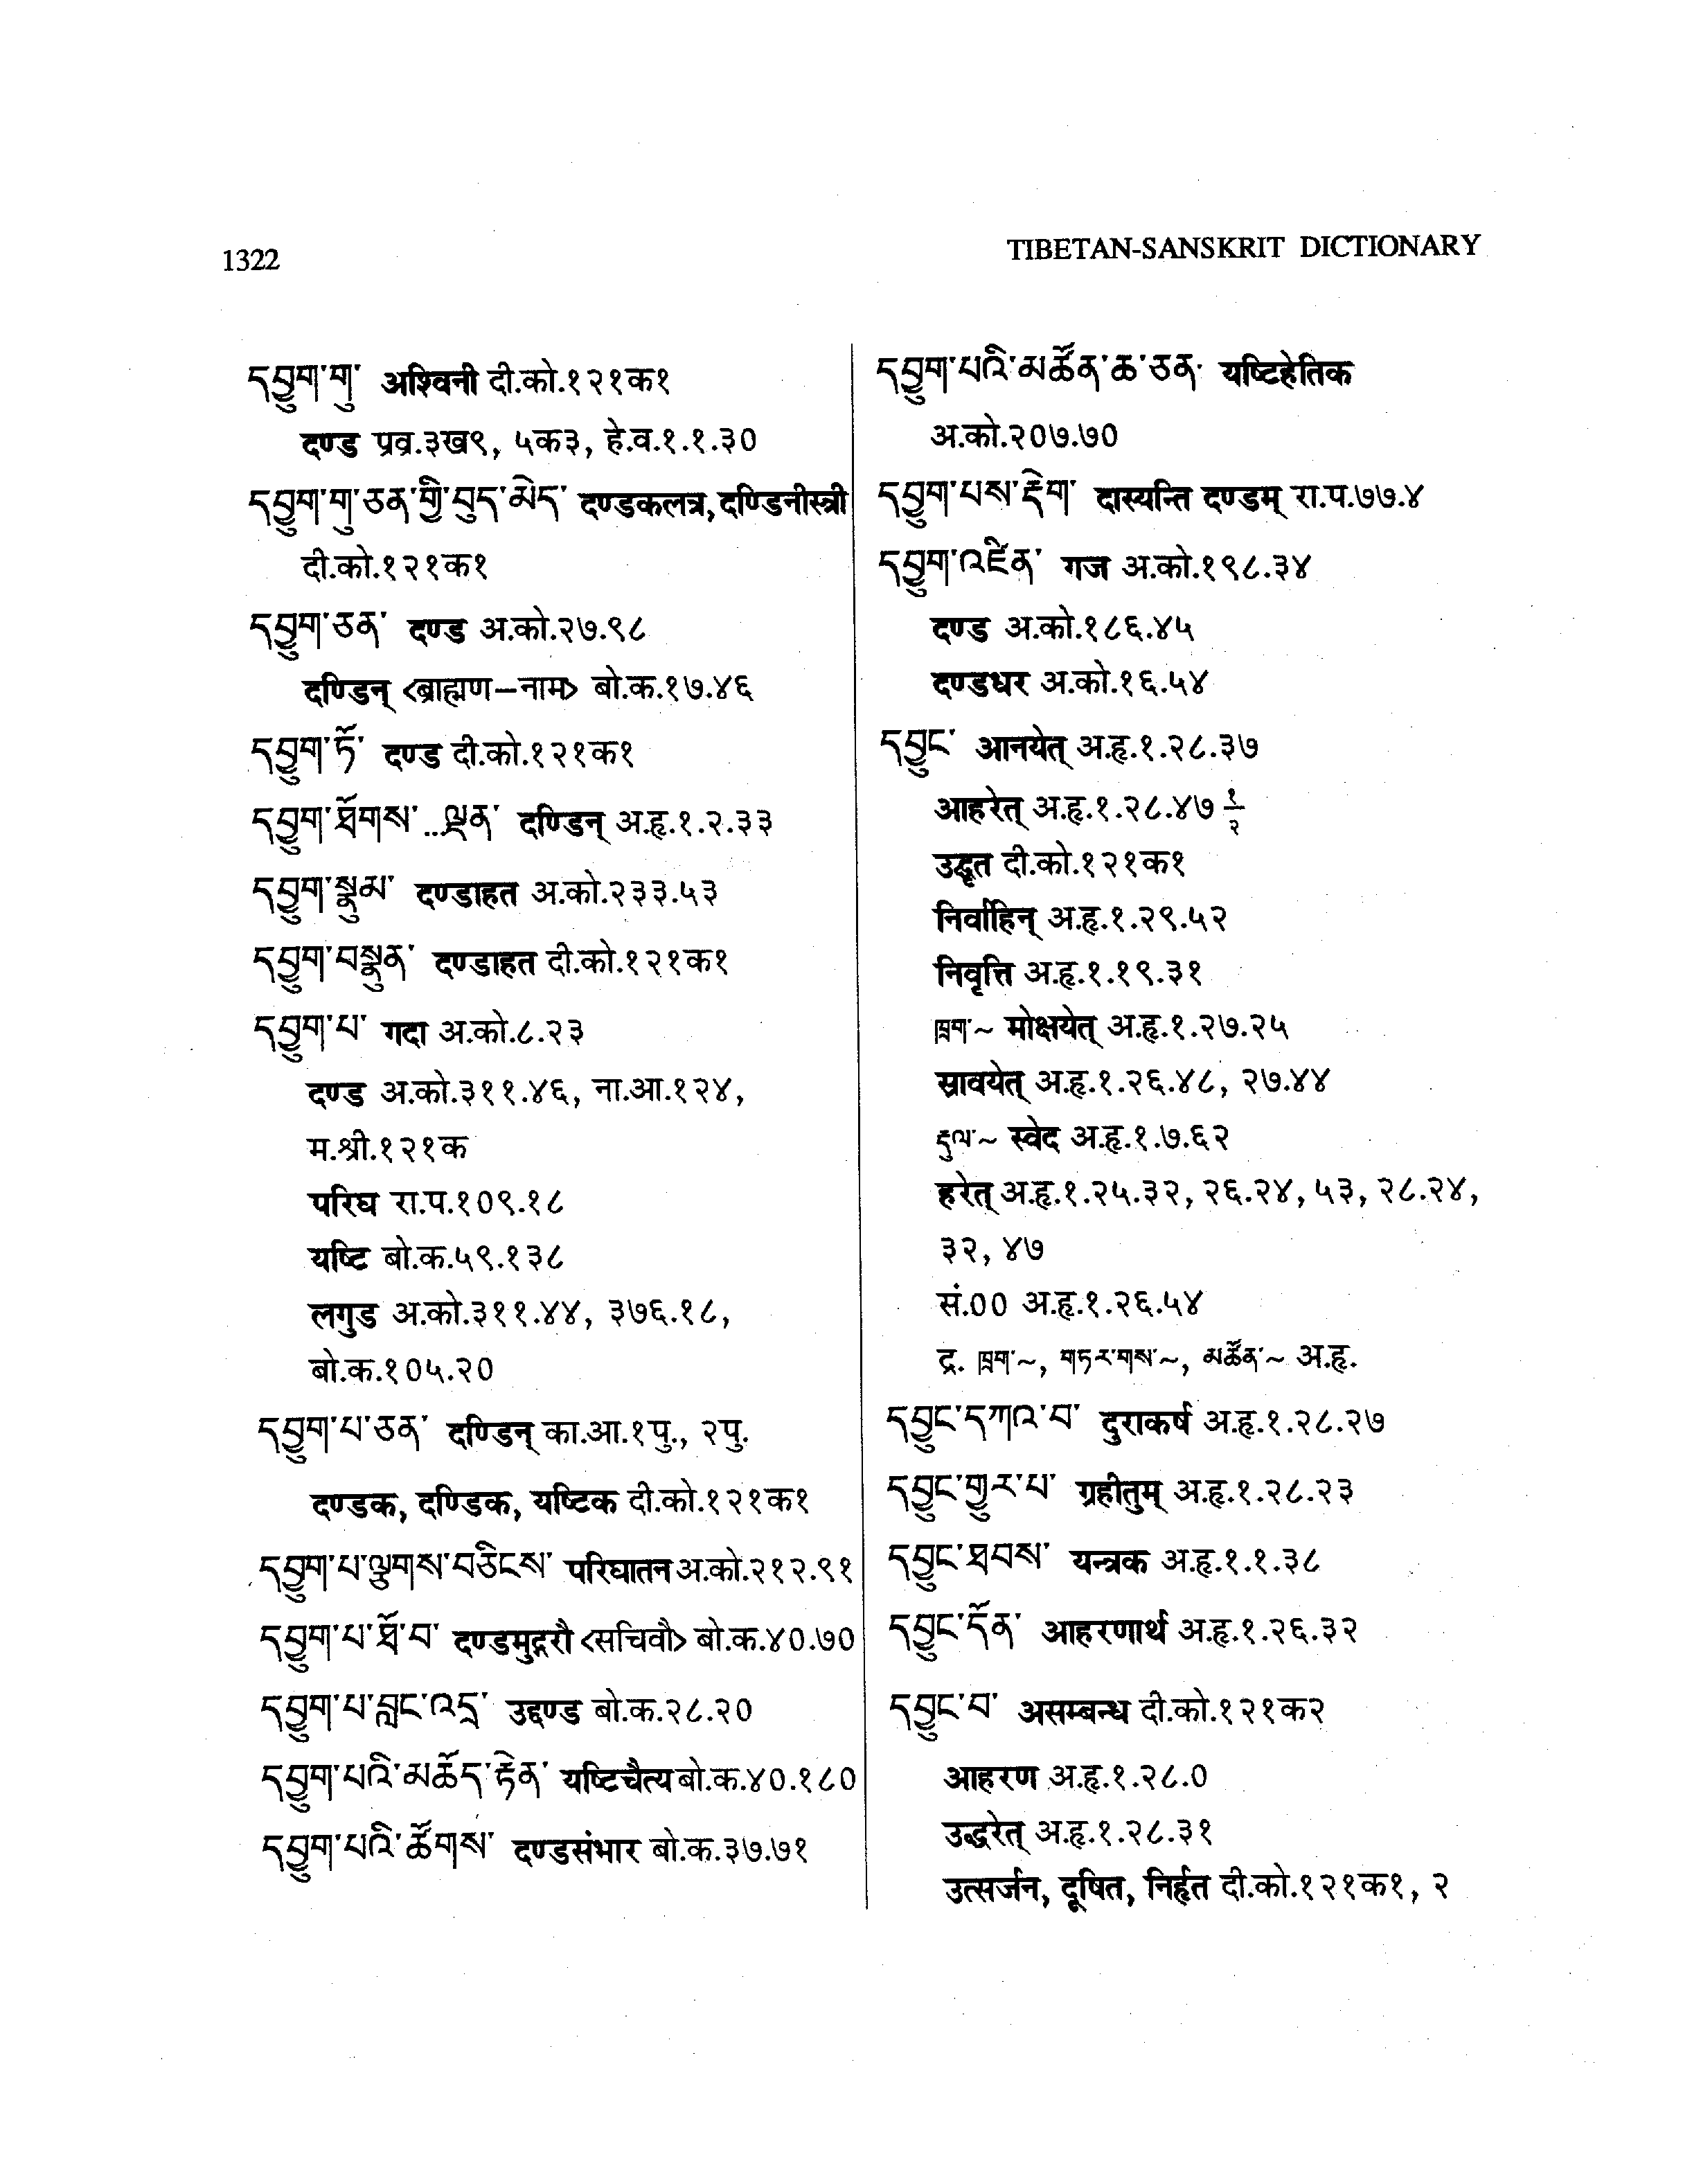 1322
TIBETAN-SANSKRIT DICTIONARY
དབྱུག་གུ་ अश्विनी दी.को.१२१क१
दण्ड प्रव्र.३ख९, ५क३, हे.व.१.१.३0
དབྱུག་གུ་ཅན་གྱི་བུད་མེད་ दण्डकलत्र, दण्डिनीस्त्री
दी.को.१२१क१
དབྱུག་ཅན་ दण्ड अ.को.२७.९८
दण्डिन् <ब्राह्मण–नाम> बो.क.१७.४६
དབྱུག་ཏོ་ दण्ड दी.को.१२१क१
དབྱུག་ཐོགས་..ལྡན་ दण्डिन् अ.हृ.१.२.३३
དབྱུག་སྣུམ་ दण्डाहत अ.को.२३३.५३
དབྱུག་བསྣུན་ दण्डाहत दी.को.१२१क१
དབྱུག་པ་ गदा अ.को.८.२३
दण्ड अ.को.३११.४६, ना.आ.१२४,
म.श्री.१२१क
परिघ रा.प.१0९.१८
यष्टि बो.क.५९.१३८
लगुड अ.को.३११.४४, ३७६.१८,
बो.क.१0५.२0
དབྱུག་པ་ཅན་ दण्डिन् का.आ.१पु., २पु.
दण्डक, दण्डिक, यष्टिक दी.को.१२१क१
དབྱུག་པ་ལྕགས་བཅིངས་ परिघातन अ.को.२१२.९१
དབྱུག་པ་ཐོ་བ་ दण्डमुद्गरौ <सचिवौ> बो.क.४0.७0
དབྱུག་པ་བླང་འདྲ་ उद्दण्ड बो.क.२८.२0
དབྱུག་པའི་མཆོད་རྟེན་ यष्टिचैत्य बो.क.४0.१८0
དབྱུག་པའི་ཚོགས་ दण्डसंभार बो.क.३७.७१
དབྱུག་པའི་མཚོན་ཆ་ཅན་ यष्टिहेतिक
अ.को.२0७.७0
དབྱུག་པས་རྡེག་ दास्यन्ति दण्डम् रा.प.७७.४
དབྱུག་འཛིན་ गज अ.को.१९८.३४
दण्ड अ.को.१८६.४५
दण्डधर अ.को.१६.५४
དབྱུང་ आनयेत् अ.हृ.१.२८.३७
आहरेत् अ.हृ.१.२८.४७ १/२
उद्धृत दी.को.१२१क१
निर्वाहिन् अ.हृ.१.२९.५२
निवृत्ति अ.हृ.१.१९.३१
ཁྲག་~ मोक्षयेत् अ.हृ.१.२७.२५
स्रावयेत् अ.हृ.१.२६.४८, २७.४४
རྡུལ་~ स्वेद अ.हृ.१.७.६२
हरेत् अ.हृ.१.२५.३२, २६.२४, ५३, २८.२४,
३२, ४७
सं.00 अ.हृ.१.२६.५४
द्र. ཁྲག་~, གཏར་གས་~, མཚོན་~ अ.हृ.
དབྱུང་དཀའ་བ་ दुराकर्ष अ.हृ.१.२८.२७
དབྱུང་གྱུར་པ་ ग्रहीतुम् अ.हृ.१.२८.२३
དབྱུང་ཐབས་ यन्त्रक अ.हृ.१.१.३८
དབྱུང་དོན་ आहरणार्थ अ.हृ.१.२६.३२
དབྱུང་བ་ असम्बन्ध दी.को.१२१क२
आहरण अ.हृ.१.२८.0
उद्धरेत् अ.हृ.१.२८.३१
उत्सर्जन, दूषित, निर्हृत दी.को.१२१क१, २